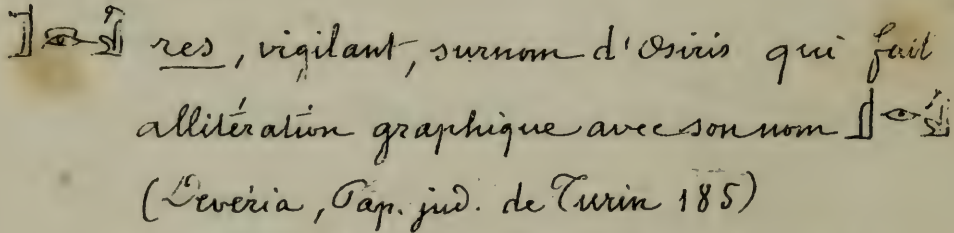 res, vigilant, surnom d'Osiris qui fait
allitération graphique avec son nom
(Devéria, Pap. jud. de Turin 185)